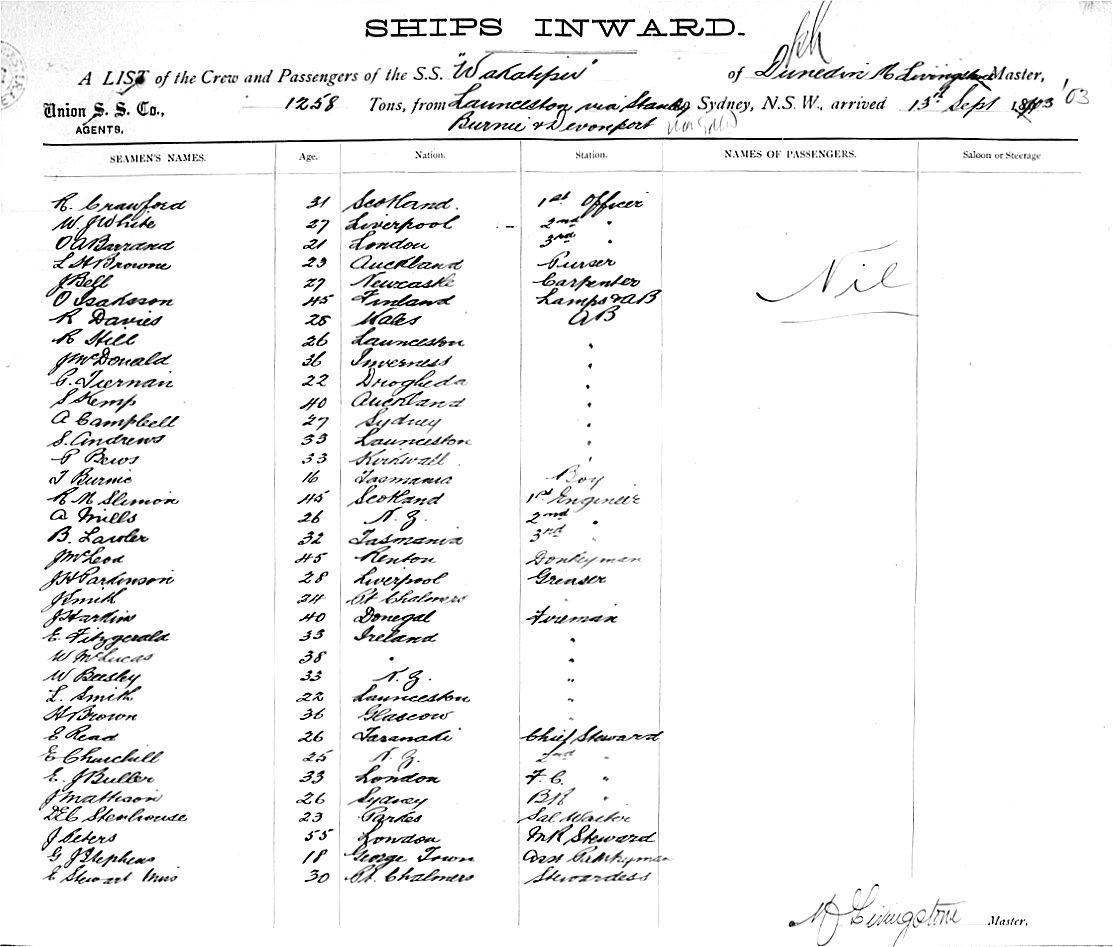 SHIPS INWARD.
A LIST of the Crew and Passengers of the S.S. "Wakatipu" of Dunedin M Livingstone Master,
Union S. S. Co., 1258 Tons, from Launceston via Stanley Sydney, N.S.W., arrived 13th Sept '03
AGENTS, Burnie & Devonport
SEAMEN'S NAMES. Age. Nation. Station. NAMES OF PASSENGERS. Saloon or Steerage
R. Crawford 31 Scotland. 1st Officer
W. J White 27 Liverpool 2nd "
O A Barrand 21 London 3rd "
L H Browne 23 Auckland Purser
J Bell 27 Newcastle Carpenter Nil
O Isaksson 45 Finland Lamps & AB
R Davies 28 Wales AB
R Hill 26 Launceston "
J McDonald 36 Inverness "
P. Tiernan 22 Drogheda "
S Kemp 40 Auckland "
A Campbell 27 Sydney "
S. Andrews 33 Launceston "
P Bews 33 Kirkwall "
T Burnie 16 Tasmania Boy
R M Slimon 45 Scotland 1st Engineer
A Mills 26 N. Z. 2nd "
B. Lawler 32 Tasmania 3rd "
J McLeod 45 Renton Donkeyman
J H Parkinson 28 Liverpool Greaser
J Smith 24 Pt Chalmers "
J Harkins 40 Donegal Fireman
E. Fitzgerald 33 Ireland "
W McLucas 38 " "
W Beesley 33 N. Z. "
L. Smith 22 Launceston "
H Brown 36 Glascow "
E Read 26 Taranaki Chief Steward
E Churchill 25 N. Z. 2nd "
E. J Buller 33 London F. C. "
J Mathison 26 Sydney BR "
D E C Stenhouse 23 Parkes Sal Waiter
J Peters 55 London MR Steward
G J Stephens 18 George Town Asst Pantryman
E Stewart Mrs 30 Pt. Chalmers Stewardess
M Livingstone Master.